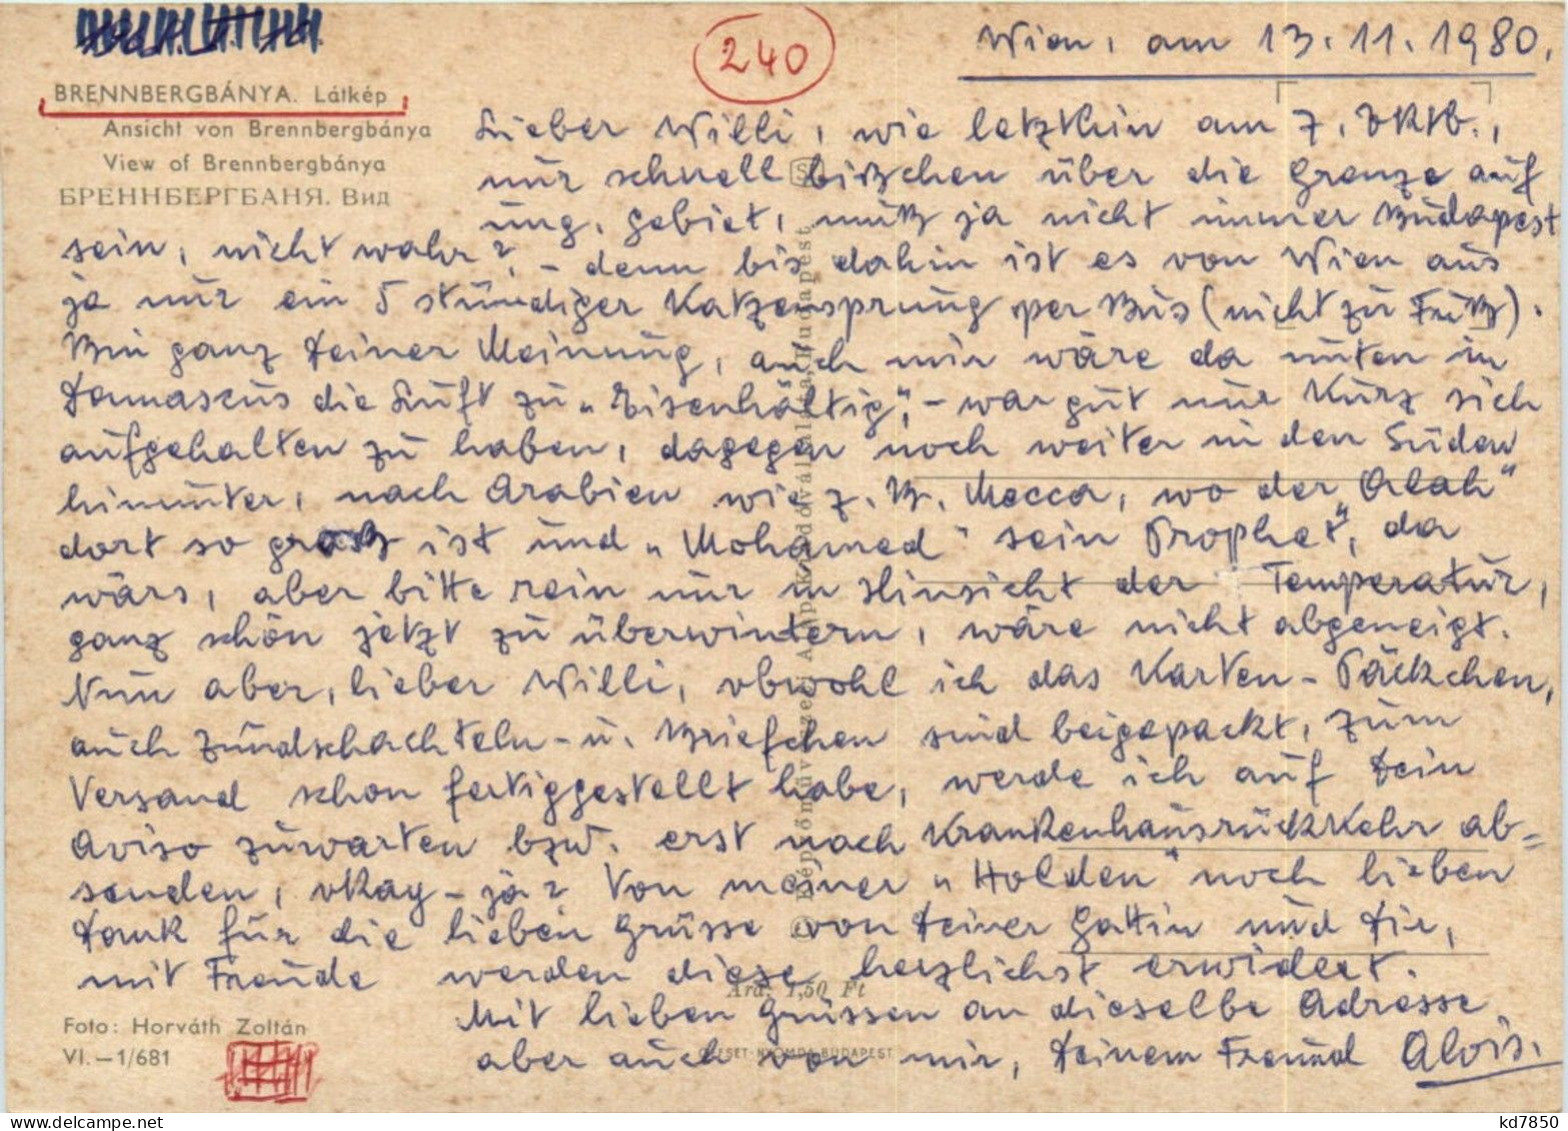 240
Wien, am 13.11.1980.
BRENNBERGBÁNYA. Látkép
Ansicht von Brennbergbánya
View of Brennbergbánya
БРЕННБЕРГБАНЯ. Вид
Lieber Willi, wie letzthin am 7. Oktb.,
nur schnell bißchen über die Grenze auf
ung. Gebiet, muß ja nicht immer Budapest
sein, nicht wahr?, - denn bis dahin ist es von Wien aus
ja nur ein 5 stündiger Katzensprung per Bus (nicht zu Fuß).
Bin ganz Deiner Meinung, auch mir wäre da unten in
Damascus die Luft zu „Eisenhältig", - war gut nur kurz sich
aufgehalten zu haben, dagegen noch weiter in den Süden
hinunter, nach Arabien wie z. B. Mecca, wo der „Alah"
dort so groß ist und „Mohamed" sein Prophet", da
wärs, aber bitte rein nur in Hinsicht der Temperatur,
ganz schön jetzt zu überwintern, wäre nicht abgeneigt.
Nun aber, lieber Willi, obwohl ich das Karten-Päckchen,
auch Zündschachteln- u. Briefchen sind beigepackt, zum
Versand schon fertiggestellt habe, werde ich auf Dein
Aviso zuwarten bzw. erst nach Krankenhausrückkehr ab=
senden, okay - ja? Von meiner „Holden" noch lieben
Dank für die lieben Grüsse von Deiner Gattin und Dir,
mit Freude werden diese herzlichst erwidert.
Mit lieben Grüssen an dieselbe Adresse,
aber auch von mir, Deinem Freund Alois.
Ára: 1,50 Ft
Foto: Horváth Zoltán
VI. — 1/681
OFFSET-NYOMDA BUDAPEST
Képzőművészeti Alap Kiadóvállalata, Budapest
kd7850